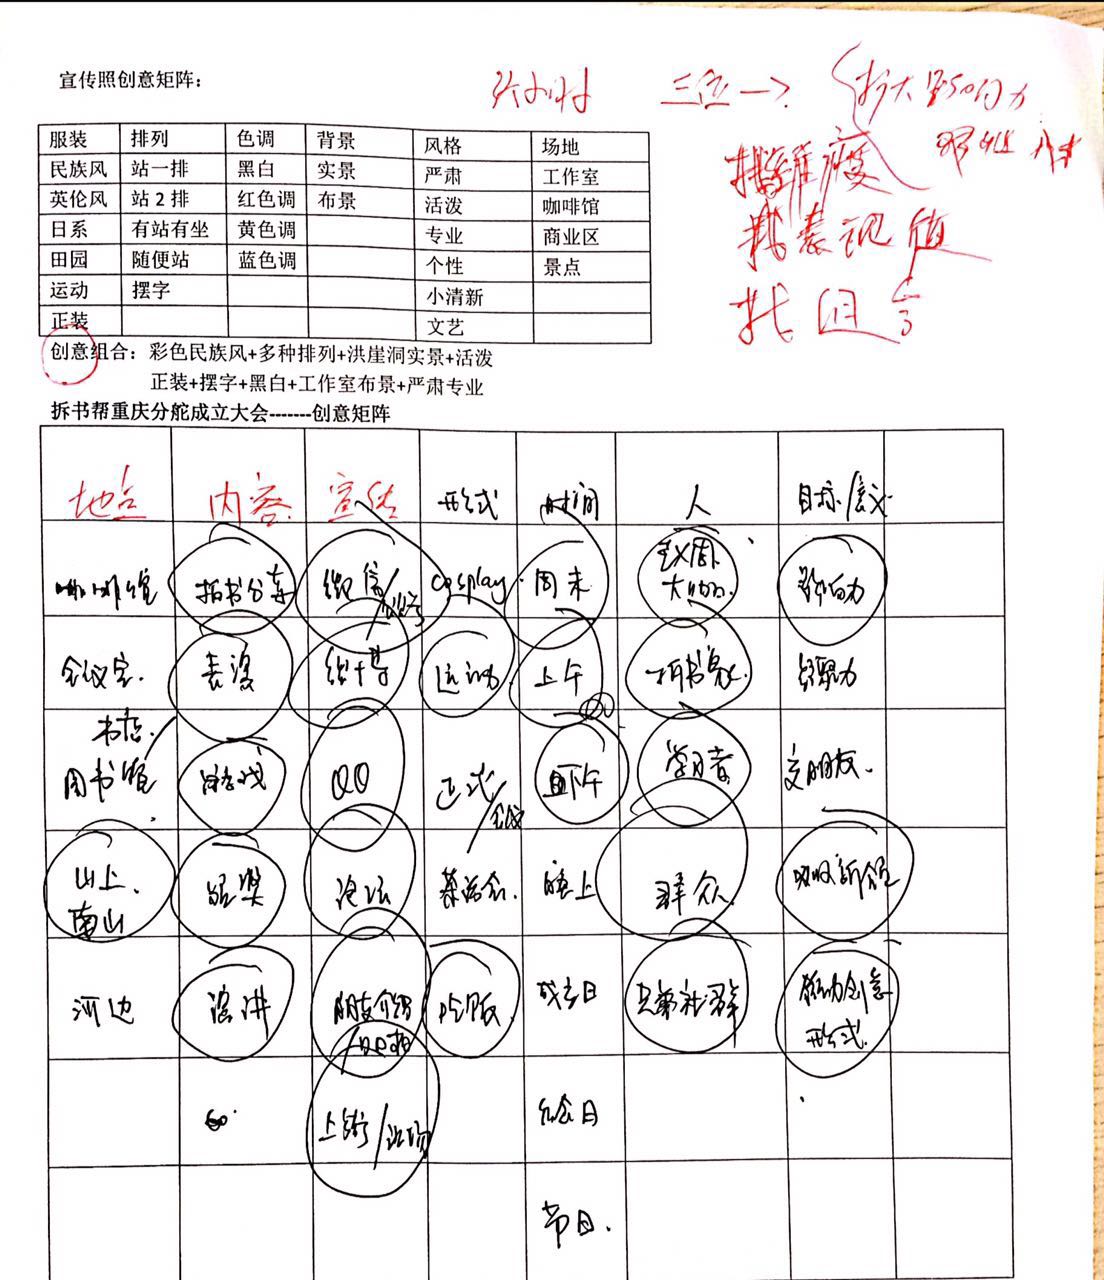 宣传照创意矩阵：
三位一→
扩大影响力
找难度
找表现值
服装 排列 色调 背景 风格 场地
民族风 站一排 黑白 实景 严肃 工作室
英伦风 站 2 排 红色调 布景 活泼 咖啡馆
日系 有站有坐 黄色调 专业 商业区
田园 随便站 蓝色调 个性 景点
运动 摆字 小清新
正装 文艺
创意组合：彩色民族风+多种排列+洪崖洞实景+活泼
正装+摆字+黑白+工作室布景+严肃专业
拆书帮重庆分舵成立大会-------创意矩阵
地点 内容 宣传 形式 时间 人 目标/意义
咖啡馆 拆书分享 微信 cosplay. 周末 影响力
会议室. 表演 运动 上午 拆书家. 凝聚力
书店.
图书馆 游戏 QQ 正式/会议 下午 学习者 交朋友.
山上. 颁奖 论坛 茶话会. 晚上 群众. 吸收新舵
南山
河边 演讲 朋友介绍 吃饭. 成立日 兄弟社群 活动创意
形式.
上街/
纪念日
节日.